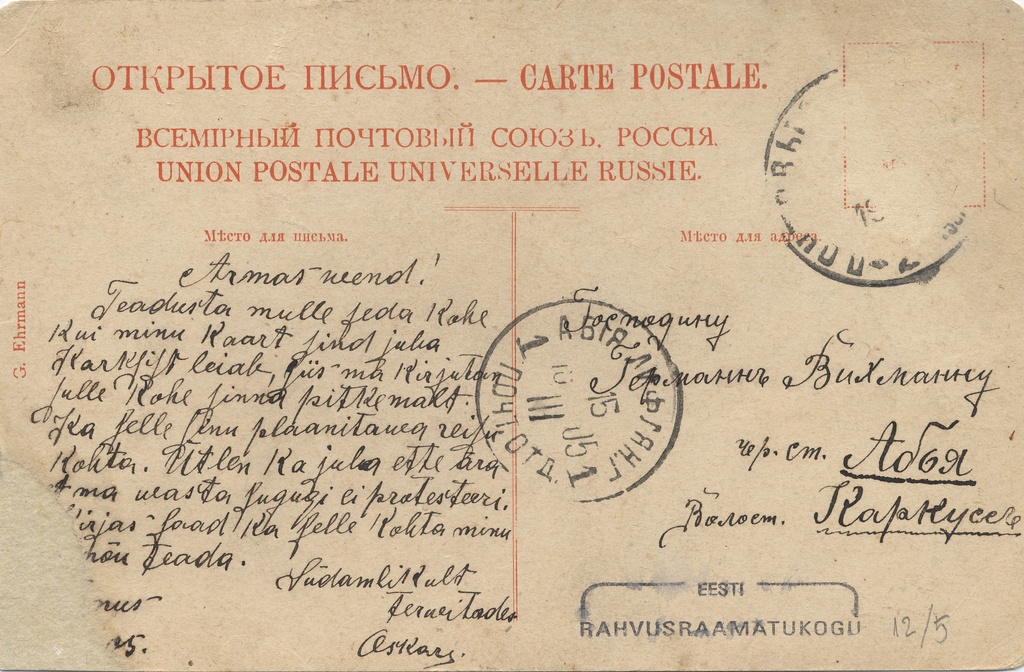 ОТКРЫТОЕ ПИСЬМО. — CARTE POSTALE.
ВСЕМІРНЫЙ ПОЧТОВЫЙ СОЮЗЪ. РОССІЯ.
UNION POSTALE UNIVERSELLE RUSSIE.
Мѣсто для письма.
Мѣсто для адреса.
G. Ehrmann
Armas wend!
Teadusta mulle seda kohe
kui minu kaart sind juba
Karksist leiab, siis ma kirjutan
sulle kohe sinna pitkemalt.
Ka selle sinu plaanitawa reisu
kohta. Ütlen ka juba ette ära
et ma wasta sugugi ei protesteeri.
Kirjas saad ka selle kohta minu
nõu teada.
Südamlikult
terwitades
Oskar.
15.
Господину
Германнъ Вихманну
чр. ст. Абья
Волост. Каркусъ
АБІЯ ЛИФЛЯНД.
ПОЧТ. ОТД.
1
III
15
05
1
EESTI
RAHVUSRAAMATUKOGU
12/5